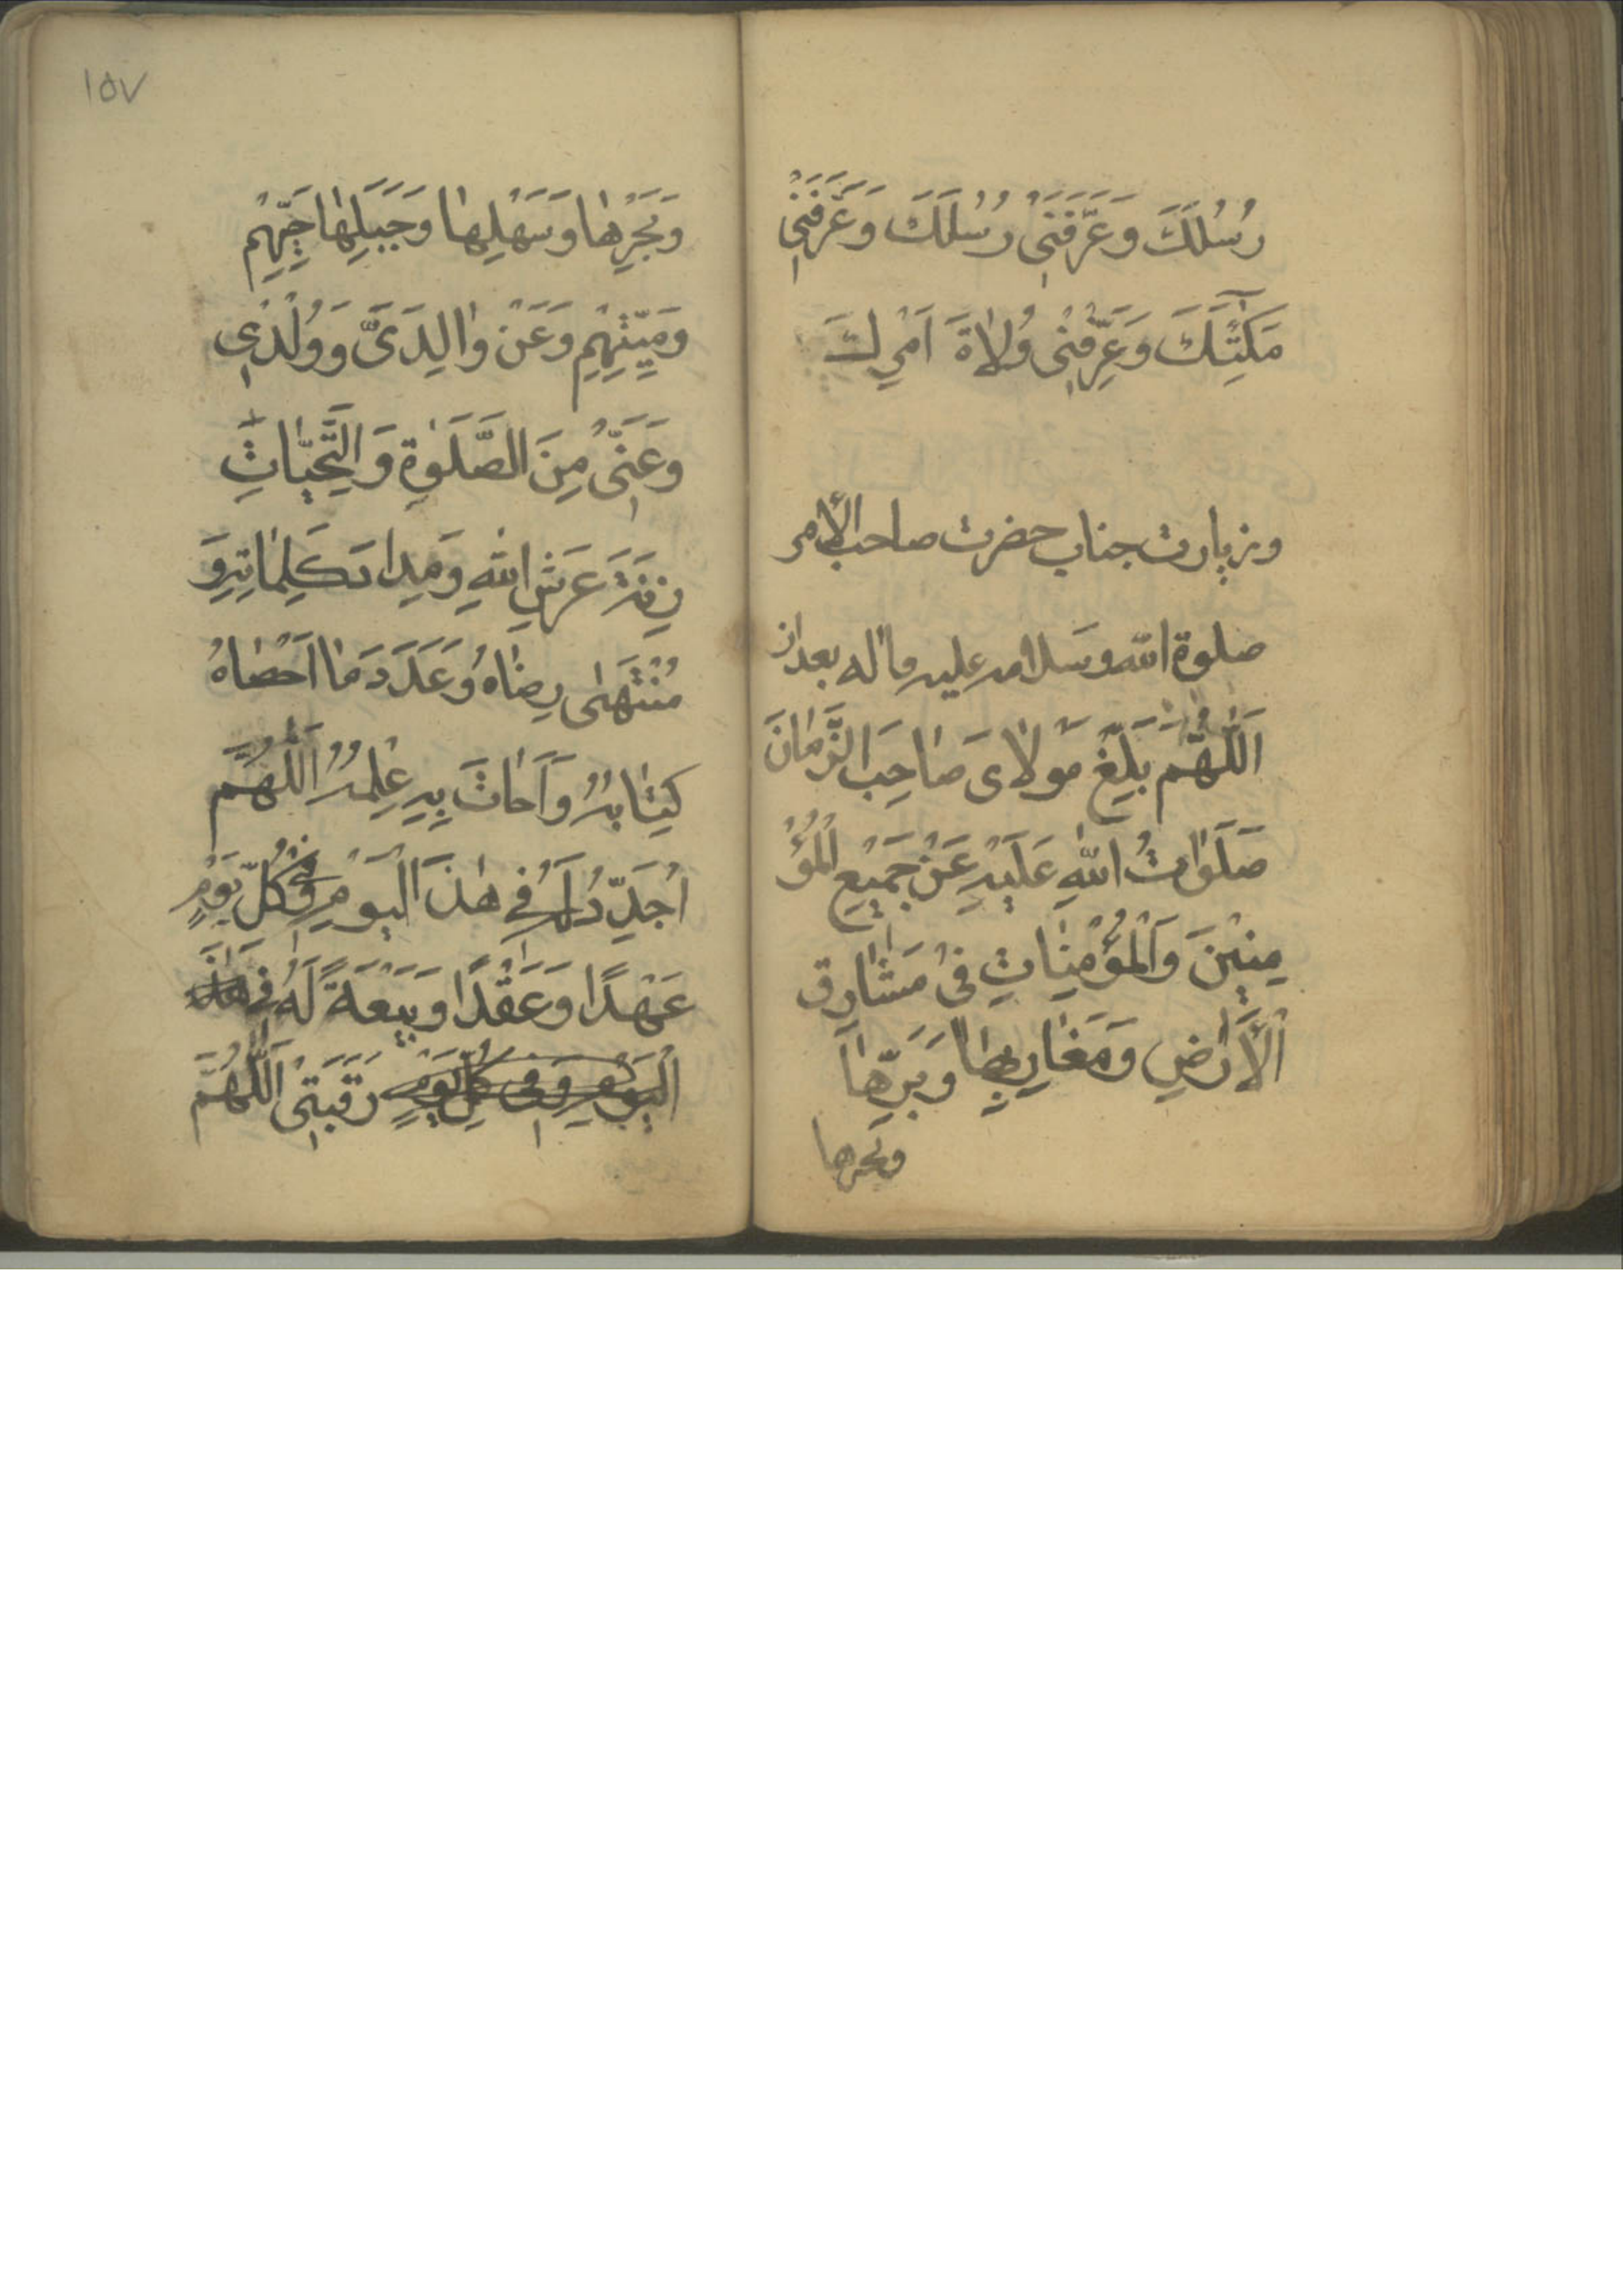 رُسُلَكَ وَعَرَّفَنَی رُسُلَكَ وَعَرَّفَنَیْ
مَلَٓئِكَتَكَ وَعَرِّفْنِی وُلاٰةَ اَمْرِكَ
وزیارت جناب حضرت صاحب الأمر
صلوة الله وسلامه علیه وآله بعد از
اَللّٰهُمَّ بَلِّغْ مَوْلاٰیَ صٰاحِبَ الزَّمٰانَ
صَلَوٰاتُ اللّٰهِ عَلَیْهِ عَنْ جَمِیْعِ الْمُؤْ
مِنِیْنَ وَالْمُؤْمِنٰاتِ فیْ مَشٰارِقِ
الْأَرْضِ وَمَغٰارِبِهٰا وَبَرِّهٰا
وبحرها
١٥٧
وَبَحْرِهٰا وَسَهْلِهٰا وَجَبَلِهٰا حَیِّهِمْ
وَمَیِّتِهِمْ وَعَنْ وٰالِدَیَّ وَوُلْدِی
وَعَنِّیْ مِنَ الصَّلَوٰةِ وَالتَّحِیّٰاتِ
زِنَةَ عَرْشِ اللّٰهِ وَمِدٰادَ كَلِمٰاتِهِ وَ
مُنْتَهٰی رِضٰاهُ وَعَدَدَ مٰا اَحْصٰاهُ
كِتٰابُهُ وَاَحٰاتَ بِهِ عِلْمُهُ اَللّٰهُمَّ
اُجَدِّدُ لَهُ فی هٰذَا الْیَوْمِ وَفی كُلِّ یَوْمٍ
عَهْدًا وَعَقْدًا وَبَیْعَةً لَهُ فی هٰذَا
الْیَوْمِ وَفی كُلِّ یَوْمٍ رَقَبَتِیْ اَللّٰهُمَّ